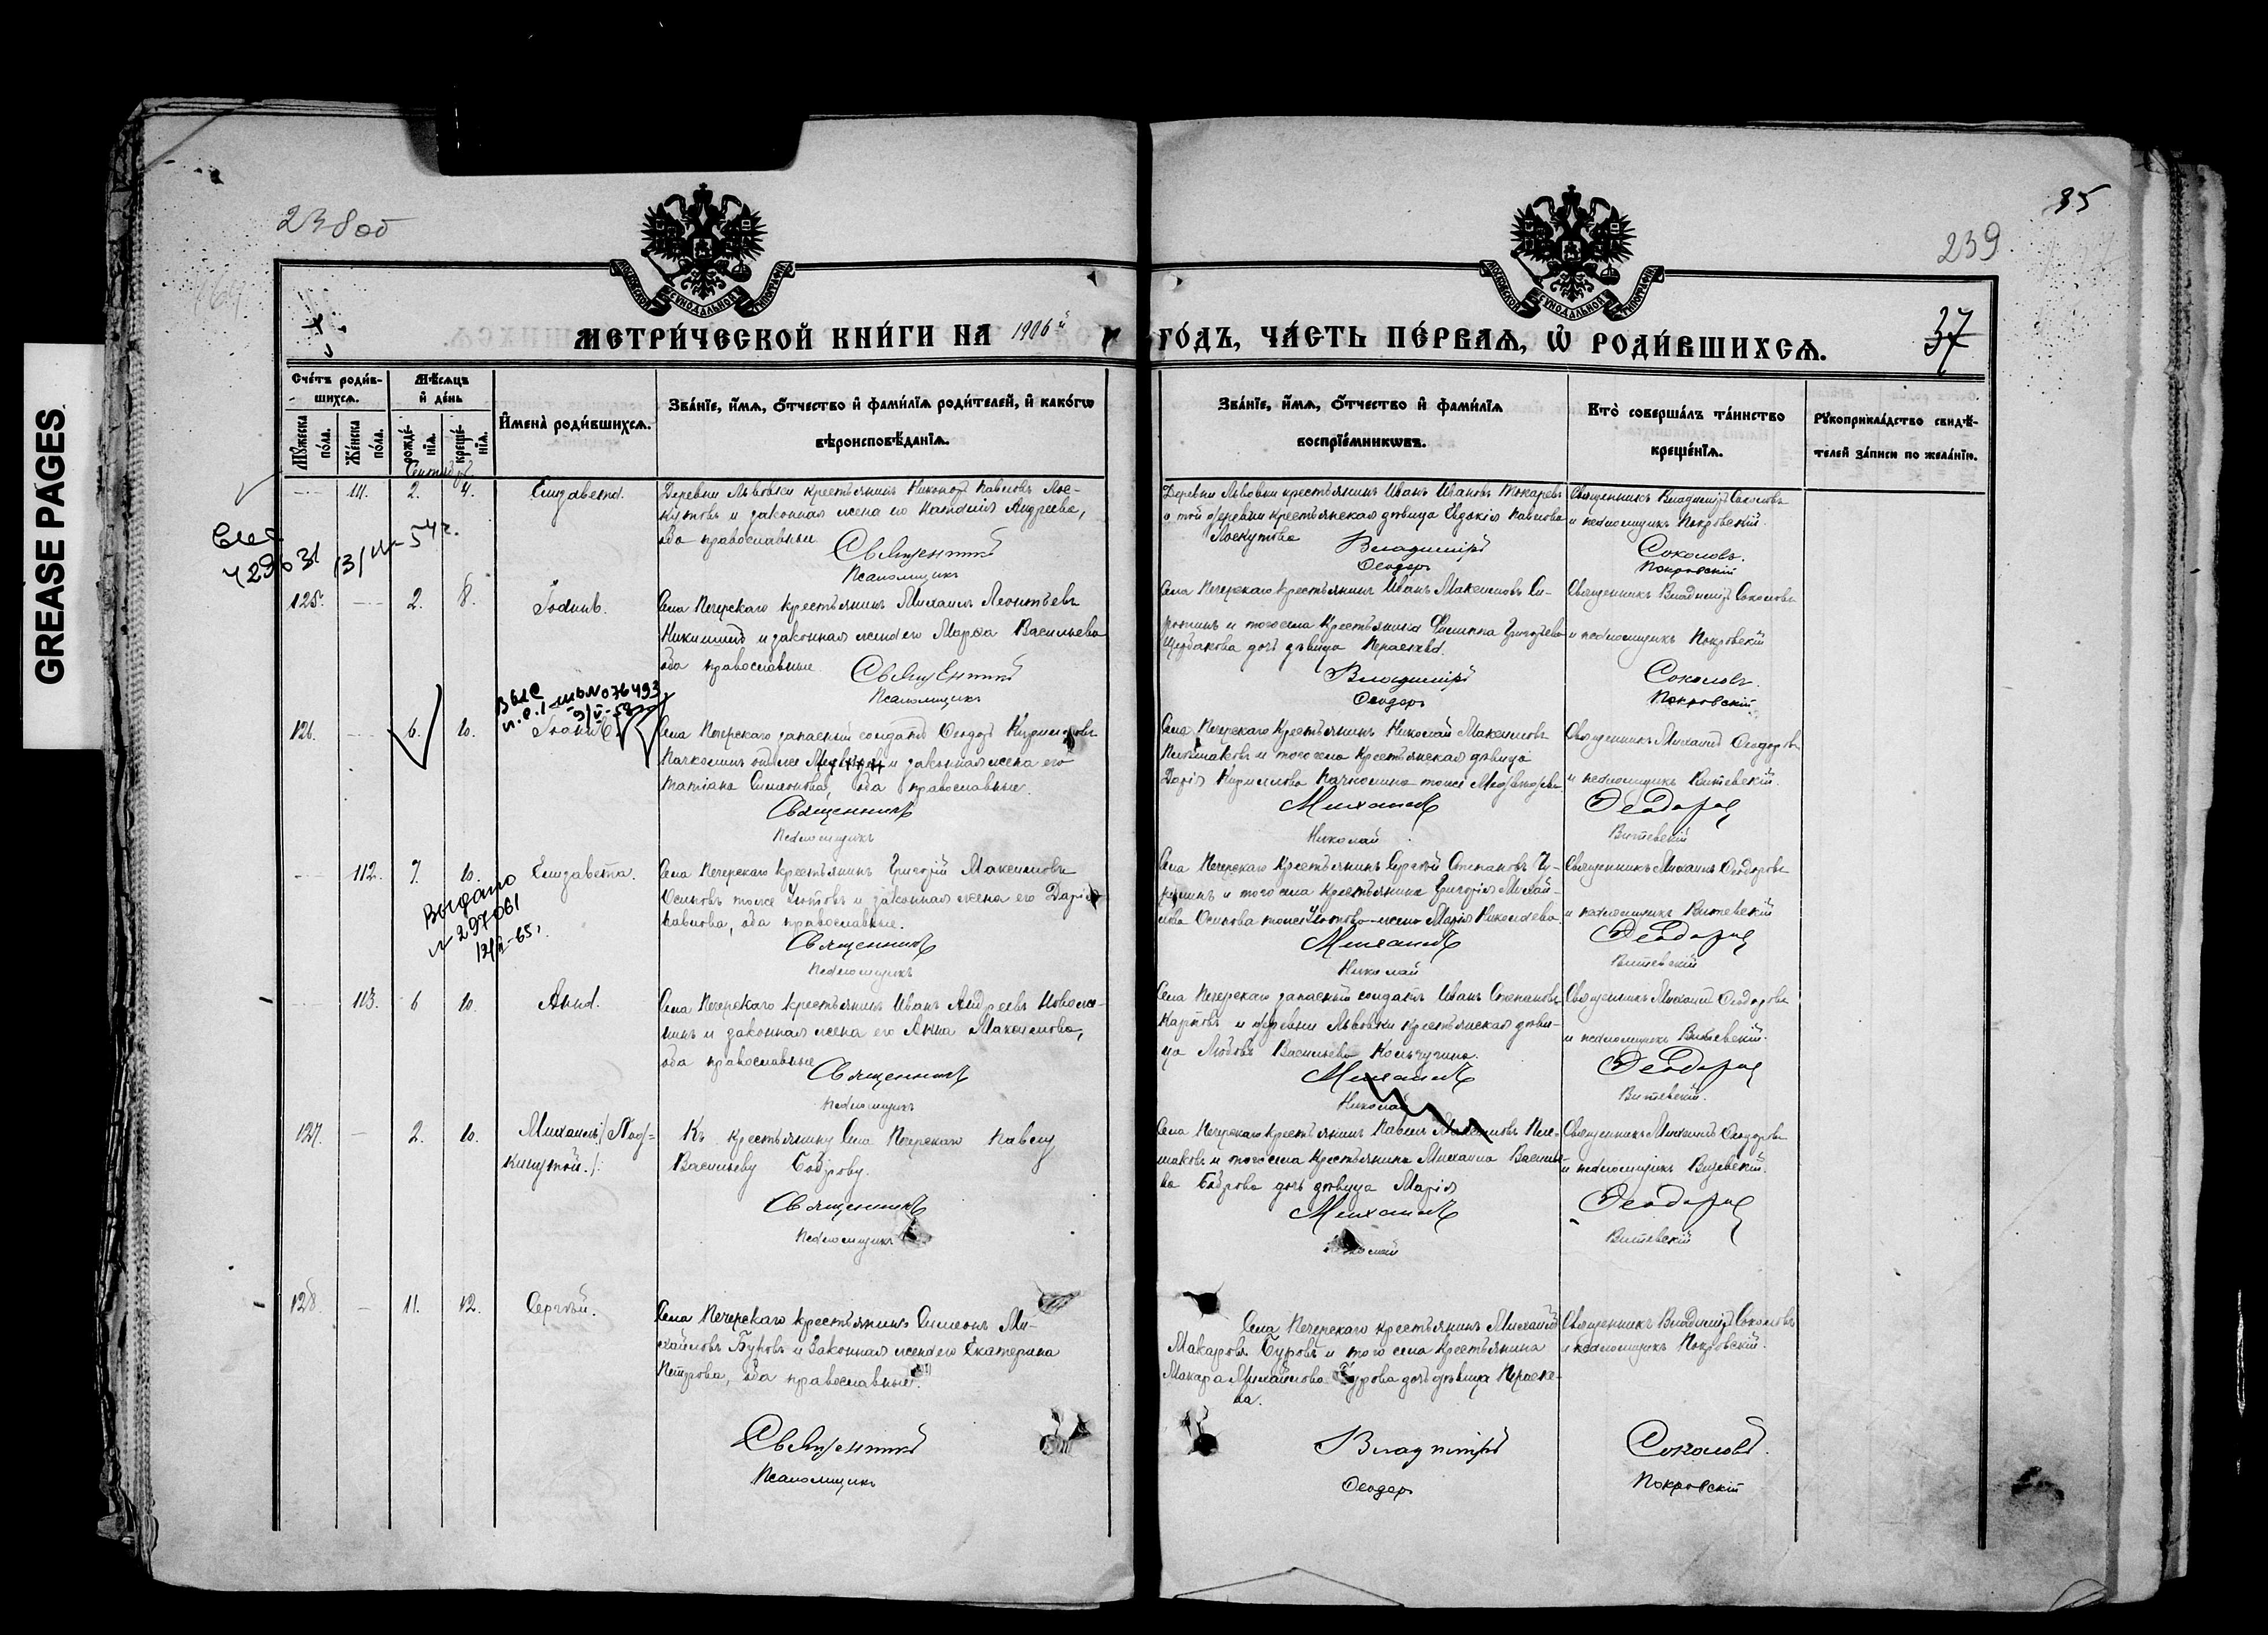 GREASE PAGES
238об
239
35
37
МОСКОВСКОЙ СѴНОДАЛЬНОЙ ТИПОГРАФІИ
МОСКОВСКОЙ СѴНОДАЛЬНОЙ ТИПОГРАФІИ
МЕТРИ́ЧЕСКОЙ КНИ́ГИ НА 1906й
ГО́ДЪ, ЧА́СТЬ ПЕ́РВАѦ, Ѡ҆ РОДИ́ВШИХСѦ.
Сче́тъ роди́в-
шихсѧ.
Мѣ́сѧцъ
и҆ де́нь
Мꙋ́жеска
по́ла.
Же́нска
по́ла.
рожде́-
нїѧ.
креще́-
нїѧ.
И҆мена̀ роди́вшихсѧ.
Зва́нїе, и҆́мѧ, ѻ҆́тчество и҆ фами́лїѧ роди́телей, и҆ како́гѡ
вѣроисповѣ́данїѧ.
Зва́нїе, и҆́мѧ, ѻ҆́тчество и҆ фами́лїѧ
воспрїе́мникѡвъ.
Кто̀ соверша́лъ та́инство
креще́нїѧ.
Рꙋкоприкла́дство свидѣ́-
телей за́писи по жела́нїю.
Сентябрь
111. 2. 4. Елизавета.
Деревни Львовки крестьянинъ Никонъ Павловъ Лос-
кутовъ и законная жена его Наталія Андреева,
оба православные
Священникъ
Псаломщикъ
Деревни Львовки крестьянинъ Иванъ Ивановъ Токаревъ
и той деревни крестьянская дѣвица Евдокія Павлова
Лоскутова
Владиміръ
Ѳеодоръ
Священникъ Владиміръ Соколовъ
и псаломщикъ Покровскій.
Соколовъ.
Покровскій
125. 2. 8. Іоаннъ.
Села Печерскаго крестьянинъ Михаилъ Леонтьевъ
Никишинъ и законная жена его Марѳа Васильева
оба православные
Священникъ
Псаломщикъ
Села Печерскаго крестьянинъ Иванъ Максимовъ Си-
ротинъ и того села крестьянина Филиппа Григорьева
Щербакова дочь дѣвица Параскева.
Владиміръ
Ѳеодоръ
Священникъ Владиміръ Соколовъ
и псаломщикъ Покровскій
Соколовъ.
Покровскій.
126. 6. 10. Іоаннъ
Села Печерскаго запасный солдатъ Ѳеодоръ Кирилловъ
Пачколинъ онъ же и законная жена его
Татіана Симеонова, оба православные.
Священникъ
Псаломщикъ
Села Печерскаго крестьянинъ Николай Максимовъ
Плешаковъ и того села крестьянская дѣвица
Дарія Кириллова Пачколина тоже
Михаилъ
Николай
Священникъ Михаилъ Ѳеодоровъ
и псаломщикъ Витевскій.
Ѳеодоровъ
Витевскій
112. 7. 10. Елизавета.
Выдано
№ 297061
Села Печерскаго крестьянинъ Григорій Максимовъ
Осиповъ тоже Утовъ и законная жена его Дарія
Павлова, оба православные.
Священникъ
Псаломщикъ
Села Печерскаго крестьянинъ Сергій Степановъ Чу-
и того села крестьянина Григорія Михай-
лова Осипова тоже Утова жена Марія Николаева
Михаилъ
Николай
Священникъ Михаилъ Ѳеодоровъ
и псаломщикъ Витевскій
Ѳеодоровъ
Витевскій
113. 6 10. Анна.
Села Печерскаго крестьянинъ Иванъ Андреевъ Новоже-
нинъ и законная жена его Анна Максимова,
оба православные
Священникъ
Псаломщикъ
Села Печерскаго запасный солдатъ Иванъ Степановъ
Карповъ и деревни Львовки крестьянская дѣви-
ца Любовь Васильева Кольчугина.
Михаилъ
Николай
Священникъ Михаилъ Ѳеодоровъ
и псаломщикъ Витевскій.
Ѳеодоровъ
Витевскій.
127. 2. 10. Михаилъ /: Под-
кинутой. :/
Къ крестьянину Села Печерскаго Павлу
Васильеву Боброву.
Священникъ
Псаломщикъ
Села Печерскаго крестьянинъ Павелъ Максимовъ Пле-
шаковъ и того села крестьянина Михаила Василье-
ва Боброва дочь дѣвица Марія
Михаилъ
Николай
Священникъ Михаилъ Ѳеодоровъ
и псаломщикъ Витевскій.
Ѳеодоровъ
Витевскій
128. 11. 12. Сергѣй.
Села Печерскаго крестьянинъ Симеонъ Ми-
хайловъ Буровъ и законная жена его Екатерина
Петрова, оба православные.
Священникъ
Псаломщикъ
Села Печерскаго крестьянинъ Михаилъ
Макаровъ Буровъ и того села крестьянина
Макара Михайлова Бурова дочь дѣвица Параске-
ва.
Владиміръ
Ѳеодоръ
Священникъ Владиміръ Соколовъ
и псаломщикъ Покровскій.
Соколовъ.
Покровскій